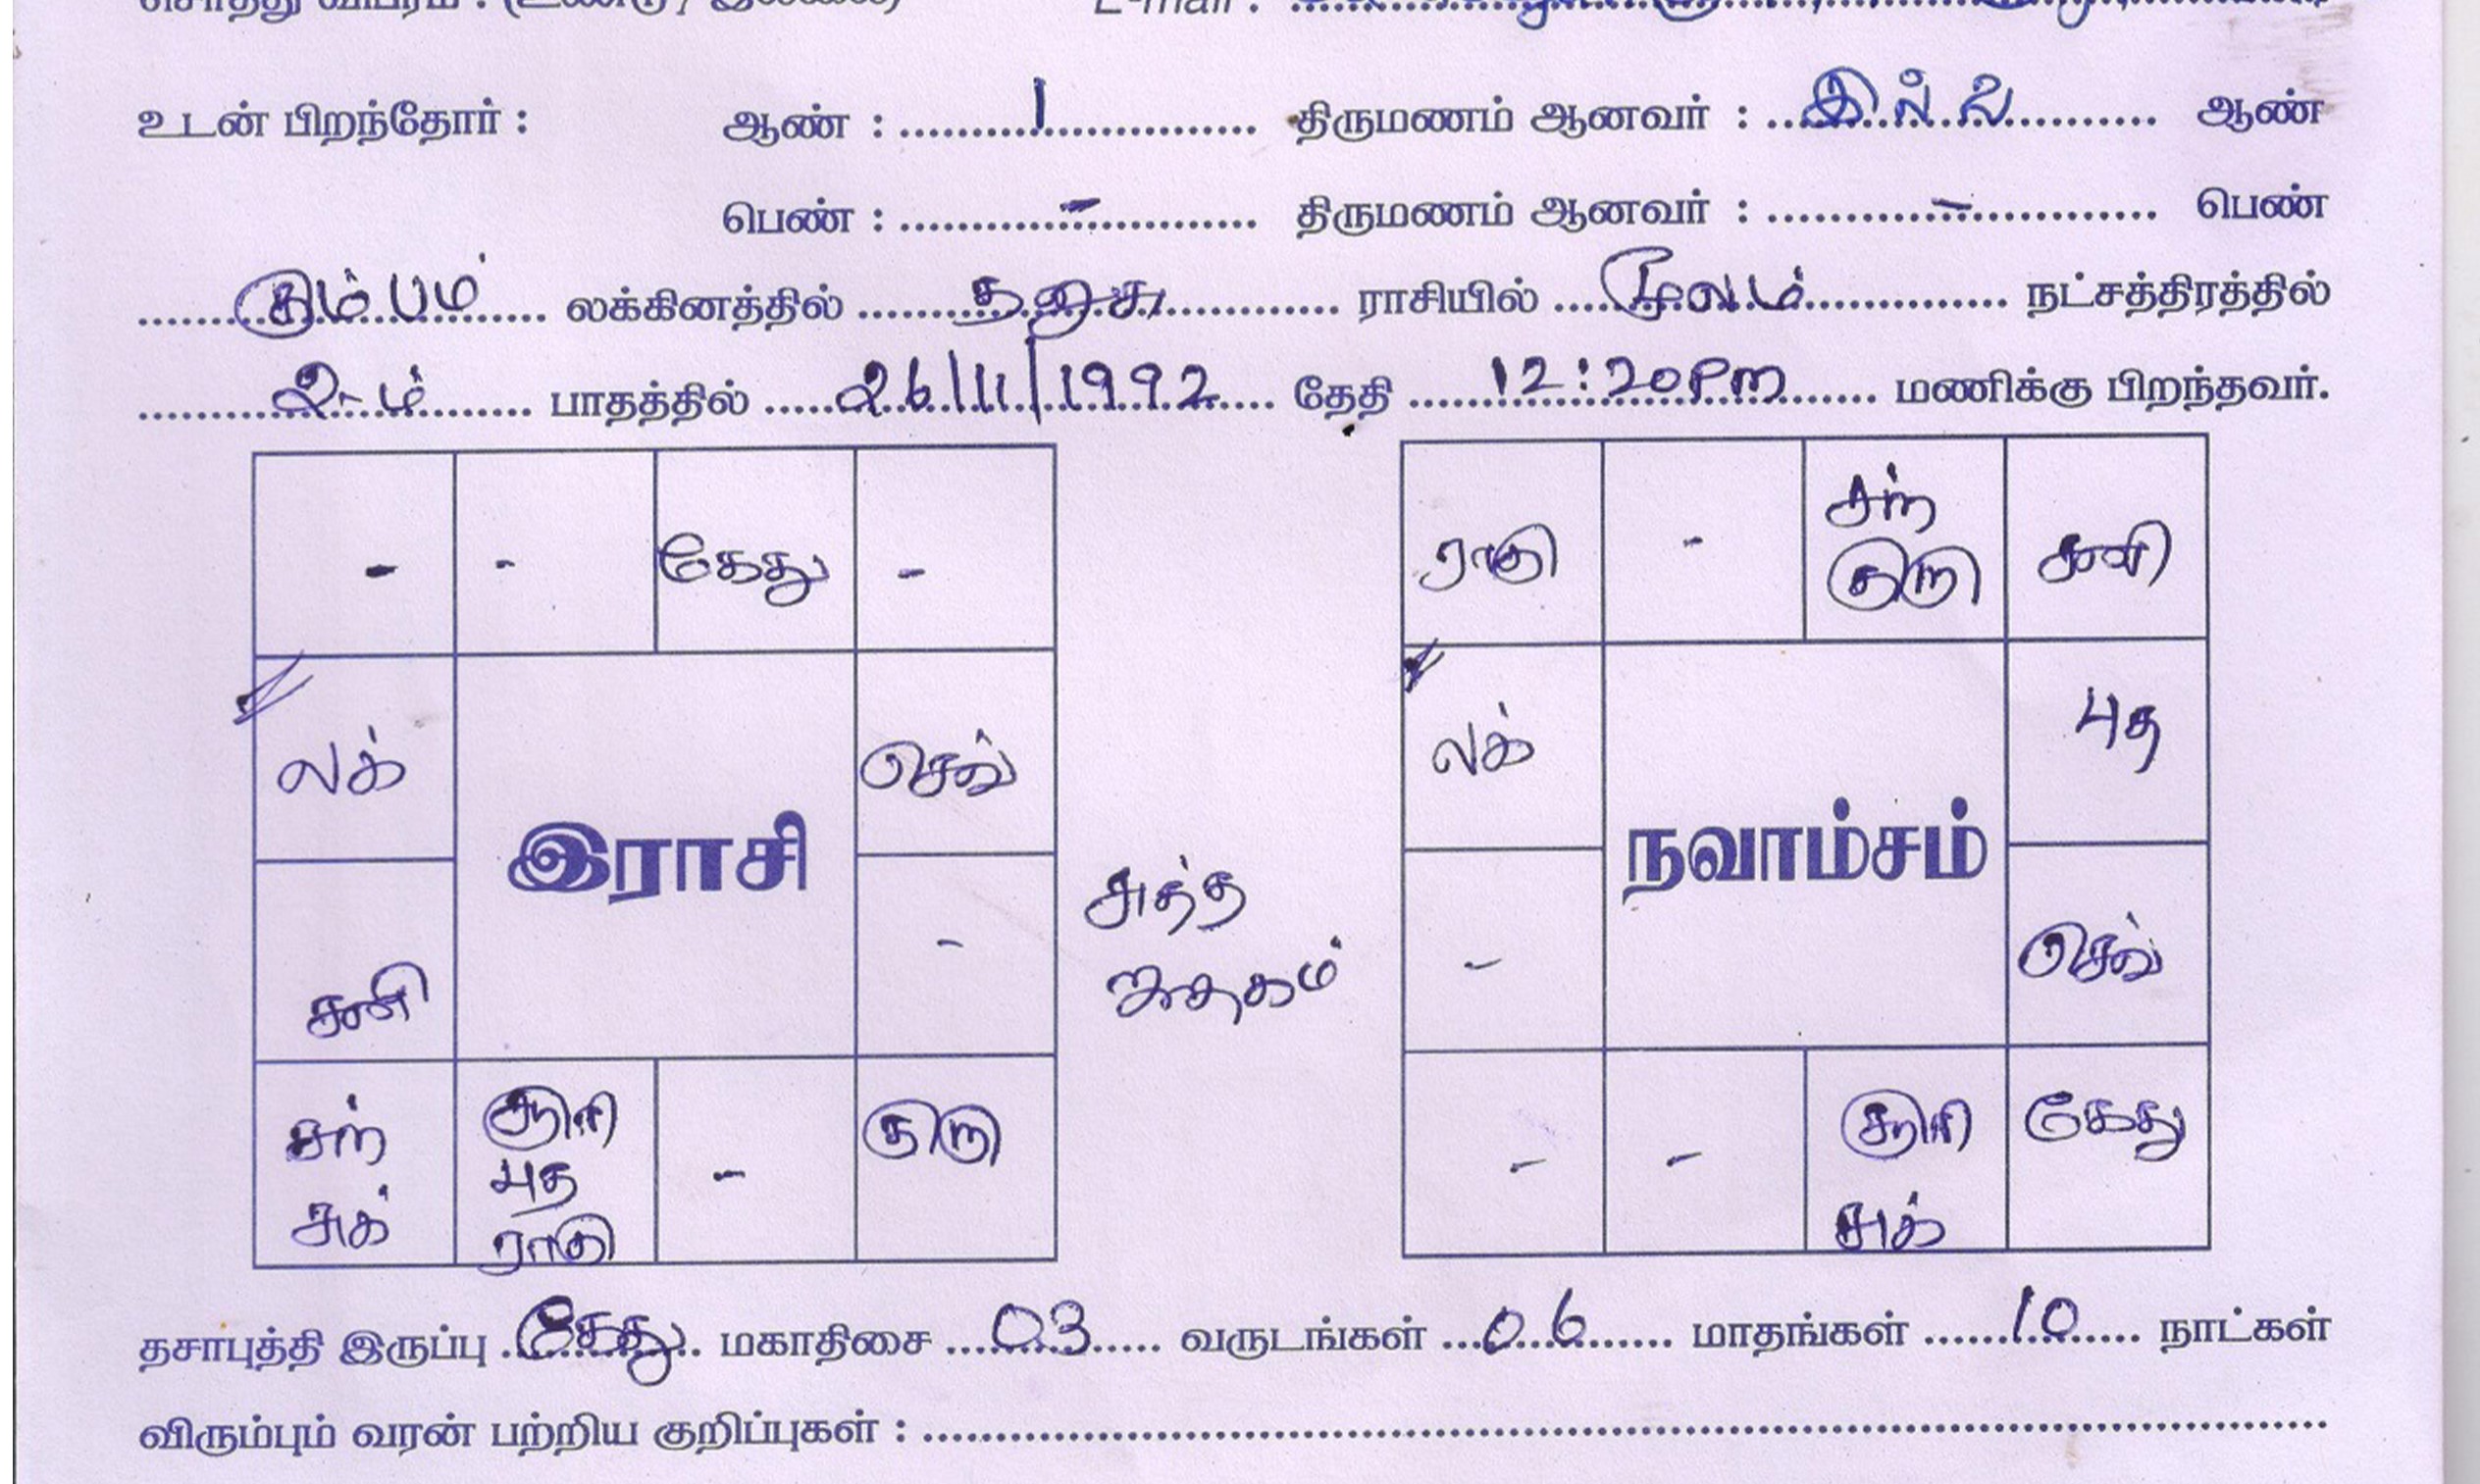 சொத்து விபரம் : (உண்டு / இல்லை) E-mail :
உடன் பிறந்தோர் : ஆண் : 1 திருமணம் ஆனவர் : இல்லை ஆண்
பெண் : - திருமணம் ஆனவர் : - பெண்
கும்பம் லக்கினத்தில் தனுசு ராசியில் மூலம் நட்சத்திரத்தில்
2-ம் பாதத்தில் 26/11/1992 தேதி 12:20pm மணிக்கு பிறந்தவர்.
- - கேது - ராகு - சந் குரு சனி
லக் செவ் லக் புத
இராசி நவாம்சம்
சனி - சுத்த ஜாதகம் - செவ்
சந் சுக் சூரி புத ராகு - குரு - - சூரி சுக் கேது
தசாபுத்தி இருப்பு கேது மகாதிசை 03 வருடங்கள் 06 மாதங்கள் 10 நாட்கள்
விரும்பும் வரன் பற்றிய குறிப்புகள் :